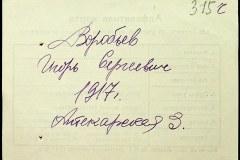 315с
Воробьев
Игорь Сергеевич
1917г.
Аптекарская 3.